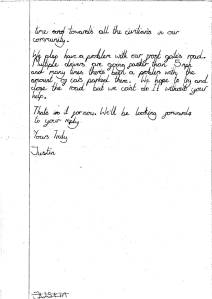 time and towards all the civilians in our
community.
We also have a problem with our front gates road.
Multiple drivers are going faster than 5mph
and many times there's been a problem with the
amount of cars parked there. We hope to try and
close the road but we can't do it without your
help.
Thats is it for now. We'll be looking forwards
to your reply
Yours Truly
Justin
JUSTIN